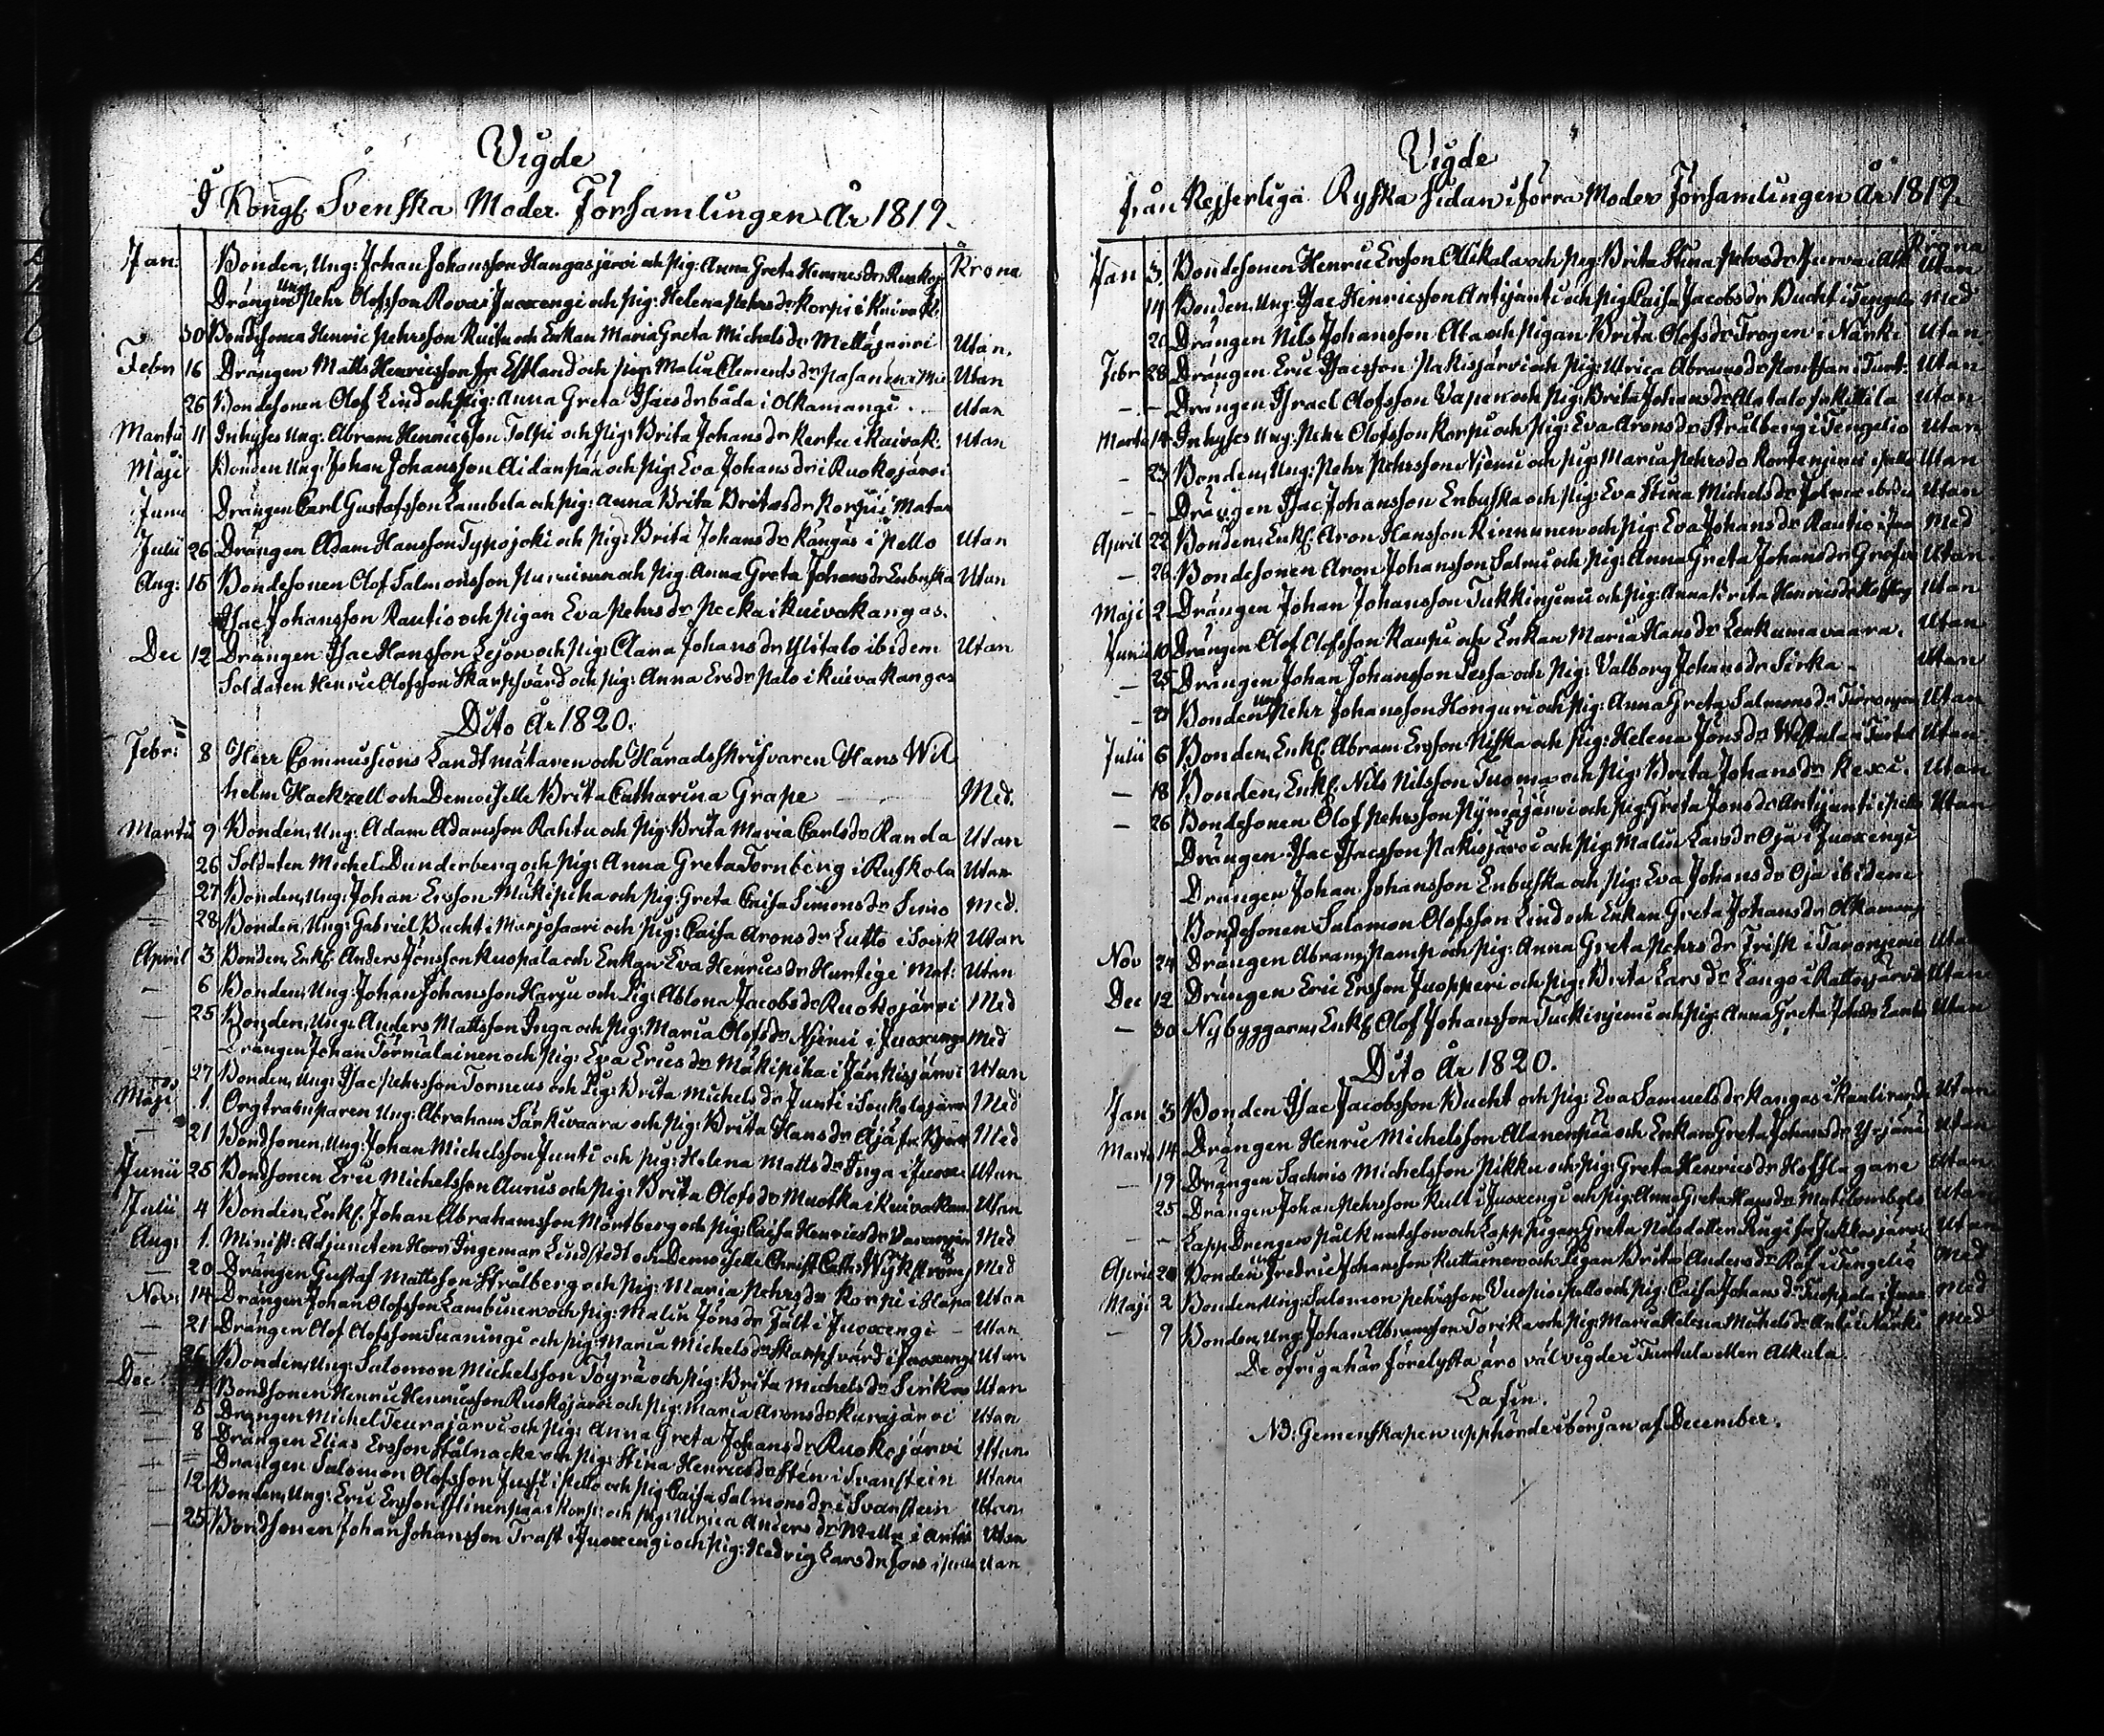 Vigde
I Kongl. Svenska Moder Församlingen År 1819.
Krona
Jan: Bonden, Ung: Johan Johansson Hangasjärvi och Pig: Anna Greta Henricsdr Ruokoj
Drängen Ung Pehr Olofsson Rova i Juoxengi och Pig: Helena Pehrsdr Korpi i Kuivak:
30 Bondesonen Henric Pehrsson och Enkan Maria Greta Michelsdr Mettäjärvi Utan.
Febr 16 Drängen Matts Henricsson fr Estland och Pig: Malin Clementsdr Pasanen i Utan
26 Bondesonen Olof Lind och Pig: Anna Greta Isacsdr båda i Alkamangi. Utan
Martii 11 Inhyses Ung: Abram Henricsson Tolpi och Pig: Brita Johansdr Kertu i Kuivak: Utan
Maji Bonden Ung: Johan Johansson Aidanpää och Pig: Eva Johansdr i Ruokojärvi
Junii Drängen Carl Gustafsson Lambela och Pig: Anna Brita Britasdr Korpi i Matar
Julii 26 Drängen Adam Hansson Typojoki och Pig: Brita Johansdr Kangas i Pello Utan
Aug: 15 Bondesonen Olof Salmonsson och Pig: Anna Greta Johansdr Enbuska Utan
Isac Johansson Rautio och Pigan Eva Pehrsdr Pecka i Kuivakangas.
Dec 12 Drängen Isac Hansson Lejon och Pig: Clara Johansdr Ylitalo ibidem Utan
Soldaten Henric Olofsson Skarpsvärd och Pig: Anna Ersdr Palo i Kuivakangas
Dito År 1820.
Febr: 8 Herr Commissions Landtmätaren och Häradsskrifvaren Hans Wil
helm Hackzell och Demoiselle Brita Catharina Grape Med.
Martii 9 Bonden, Ung: Adam Adamsson Rahtu och Pig: Brita Maria Carlsdr Randa Utan
26 Soldaten Michel Dunderberg och Pig: Anna Greta Tornberg i Ruskola Utan
27 Bonden, Ung: Johan Ersson Mäkipiha och Pig: Greta Caisa Simonsdr Simo Med.
— 28 Bonden, Ung: Gabriel Bucht i Marjosaari och Pig: Caisa Aronsdr Lutto i Utan
April 3 Bonden, Enkl: Anders Jönsson Kuopala och Enkan Eva Henricsdr Hurtig i Mat: Utan
— 6 Bonden, Ung: Johan Johansson Harju och Pig: Ablona Jacobsdr Ruokojärvi Med
— 25 Bonden, Ung: Anders Mattsson Inga och Pig: Maria Olofsdr Niemi i Juoxengi Med
Drängen Johan Törmälainen och Pig: Eva Ericsdr Mäkipiha i Jänkisjärvi Utan
— 27 Bonden, Ung: Isac Pehrsson Torneus och Pig: Brita Michelsdr Junti i Med
Maji 1. Orgtramparen Ung: Abraham Särkivaara och Pig: Brita Hansdr Äjä fr Med
— 21 Bondsonen, Ung: Johan Michelsson Junti och Pig: Helena Mattsdr Inga i Juoxe Utan
Junii 25 Bondsonen Eric Michelsson Aurus och Pig: Brita Olofsdr Muotka i Kuivakan Utan
Julii 4 Bonden, Enkl: Johan Abrahamsson Mörtberg och Pig: Caisa Henricsdr Med
Aug: 1. Minist: Adjuncten Herr Ingemar Lindstedt och Demoiselle Christ: Cath: Wykström Med
— 20 Drängen Gustaf Mattsson Strålberg och Pig: Maria Pehrsdr Korpi i Utan
Nov: 14 Drängen Johan Olofsson Lambinen och Pig: Malin Jönsdr Fält i Juoxengi Utan
— 21 Drängen Olof Olofsson Suaningi och Pig: Maria Michelsdr Skarpsvärd i Juoxengi Utan
26 Bonden, Ung: Salomon Michelsson Töyrä och Pig: Brita Michelsdr Utan
Dec Bondsonen Henric Henricsson Ruokojärvi och Pig: Maria Aronsdr Kurajärvi Utan
— 5 Drängen Michel Teurajärvi och Pig: Anna Greta Johansdr Ruokojärvi Utan
— 8 Drängen Elias Ersson Stålnacke och Pig: Stina Henricsdr Sten i Svanstein Utan
Drängen Salomon Olofsson i Pello och Pig Caisa Salmonsdr i Svanstein Utan
— 12 Bonden, Ung: Eric Ersson i Korpi och Pig: Ulrica Andersdr Utan
— 25 Bondsonen Johan Johansson Trast i Juoxengi och Pig: Hedvig Larsdr Utan
Vigde
från Keijserliga Ryska sidan i förra Moder Församlingen År 1819.
Krona
Jan 3 Bondesonen Henric Ersson Alkkala och Pig: Brita Stina Pehrsdr i Alk Utan
14 Bonden, Ung: Isac Henricsson Antijunti och Pig Caisa Jacobsdr Bucht i Tengeliö Med
20 Drängen Nils Johansson Ala och Pigan Brita Olofsdr Trogen i Närki Utan
Febr 28 Drängen Eric Isacsson Pakisjärvi och Pig: Ulrica Abramsdr i Turt: Utan
— Drängen Israel Olofsson Vapen och Pig: Brita Johansdr Alatalo fr Kittilä Utan
Martii 14 Inhyses Ung: Pehr Olofsson Korpi och Pig: Eva Aronsdr Strålberg i Tengeliö Utan
— 23 Bonden, Ung: Pehr Pehrsson Niemi och Pig: Maria Pehrsdr Kortenjemi i Pello Utan
— Drängen Isac Johansson Enbuska och Pig: Eva Stina Michelsdr ibidem Utan
April 22 Bonden, Enkl: Aron Hansson Kinnunen och Pig: Eva Johansdr Rautio i Juo Med
— 26 Bondesonen Aron Johansson Salmi och Pig: Anna Greta Johansdr Utan
Maji 2 Drängen Johan Johansson Tukkinjemi och Pig: Anna Brita Henricsdr Utan
Junii 10 Drängen Olof Olofsson Raupi och Enkan Maria Hansdr Lenkumavaara. Utan
— 25 Drängen Johan Johansson Lessa och Pig: Valborg Johansdr Sirka. Utan
Bonden Ung Pehr Johansson Honguri och Pig: Anna Greta Salmonsdr Utan
Julii 6 Bonden, Enkl: Abram Ersson Niska och Pig: Helena Jönsdr i Turtul Utan
— 18 Bonden, Enkl: Nils Nilsson Tuoma och Pig: Brita Johansdr Kexi. Utan
— 26 Bondesonen Olof Pehrsson och Pig: Greta Jönsdr Antijunti i Pello Utan
Drängen Isac Isacsson Pakisjärvi och Pig: Malin Larsdr Oja i Juoxengi
Drängen Johan Johansson Enbuska och Pig: Eva Johansdr Oja ibidem
Bondesonen Salomon Olofsson Lind och Enkan Greta Johansdr Alkamang
Nov 24 Drängen Abram Pamp och Pig: Anna Greta Pehrsdr Frisk i Utan
Dec 12 Drängen Eric Ersson Juopperi och Pig: Brita Larsdr Lango i Rattosjärvi Utan
— 30 Nybyggarn, Enkl: Olof Johansson Tuckinjemi och Pig: Anna Greta Johdr Utan
Dito År 1820.
Jan 3 Bonden Isac Jacobsson Bucht och Pig: Eva Samuelsdr Kangas i Kaulirandi Utan
Martii 14 Drängen Henric Michelsson Alanenpää och Enkan Greta Johansdr Utan
— 19 Drängen Sachris Michelsson Pikku och Pig: Greta Henricsdr Hofslagare Utan
25 Drängen Johan Pehrsson Kult i Juoxengi och Pig: Anna Greta Hansdr Utan
— Lapp Drengen Pål Knutsson och Lapp Pigan Greta Nilsdotter Utan
April 20 Bonden Ung Fredric Johansson Kuttainen och Pigan Brita Andersdr Räf i Tengeliö Med
Maji 2 Bonden Ung: Salomon Pehrsson Vuopio i Pello och Pig: Caisa Johansd: Kuoppala i Juox Med
— 9 Bonden, Ung: Johan Abramsson Torika och Pig: Maria Helena Michelsdr Anti i Närki Med
De öfriga här förelysta äro väl vigde i Turtula eller Alkula.
Lafin.
NB: Gemenskapen upphörde i början af December.